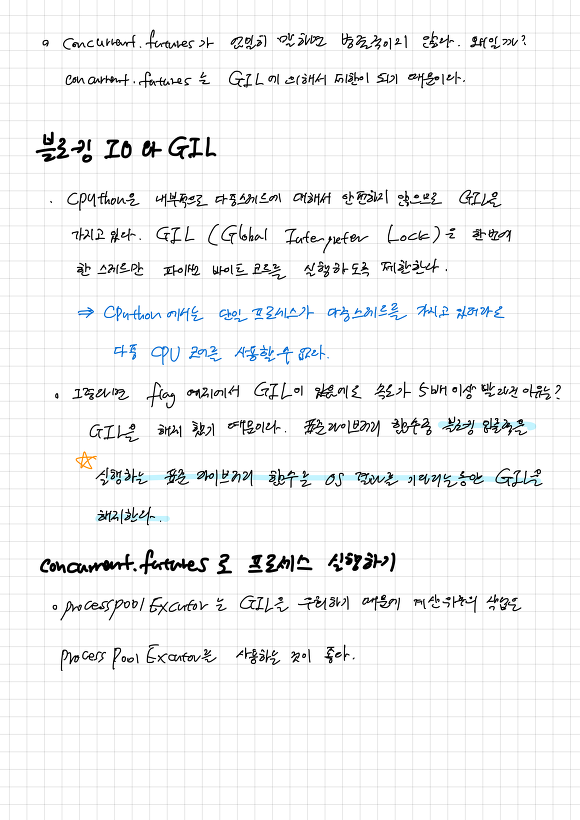 Concurrent.futures가 엄밀히 말하면 병렬적이지 않다. 왜일까?
concurrent.futures는 GIL에 의해서 제한이 되기 때문이다.
블로킹 IO와 GIL
CPython은 내부적으로 다중스레드에 대해서 안전하지 않으므로 GIL을
가지고 있다. GIL (Global Interpreter Lock)은 한번에
한 스레드만 파이썬 바이트 코드를 실행하도록 제한한다.
⇒ CPython에서는 단일 프로세스가 다중스레드를 가지고 있더라도
다중 CPU 코어를 사용할 수 없다.
그렇다면 flag 예제에서 GIL이 있음에도 속도가 5배 이상 빨라진 이유는?
GIL을 해제 했기 때문이다. 표준라이브러리 함수중 블로킹 입출력을
실행하는 표준 라이브러리 함수는 OS 결과를 기다리는동안 GIL을
해제한다.
concurrent.futures로 프로세스 실행하기
processpool Excutor는 GIL을 우회하기 때문에 계산위주의 작업은
process Pool Excutor를 사용하는 것이 좋다.